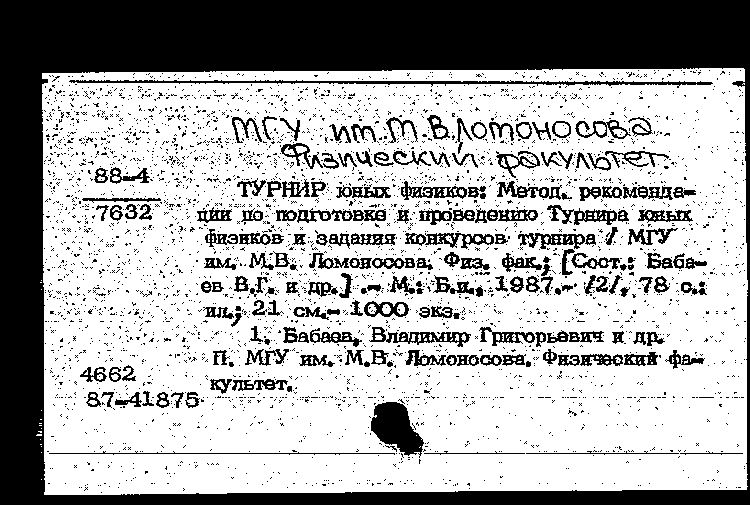 МГУ им. М.В.Ломоносова
Физический факультет.
88-4
7632
ТУРНИР юных физиков: Метод. рекоменда-
ции по подготовке и проведению Турнира юных
физиков и задания конкурсов турнира / МГУ
им. М.В. Ломоносова. Физ. фак.; [Сост.: Баба-
ев В.Г. и др.] .- М.: Б.и., 1987.- /2/, 78 с.:
ил.; 21 см.- 1000 экз.
1. Бабаев, Владимир Григорьевич и др.
П. МГУ им. М.В. Ломоносова. Физический фа-
культет.
4662
87-41875